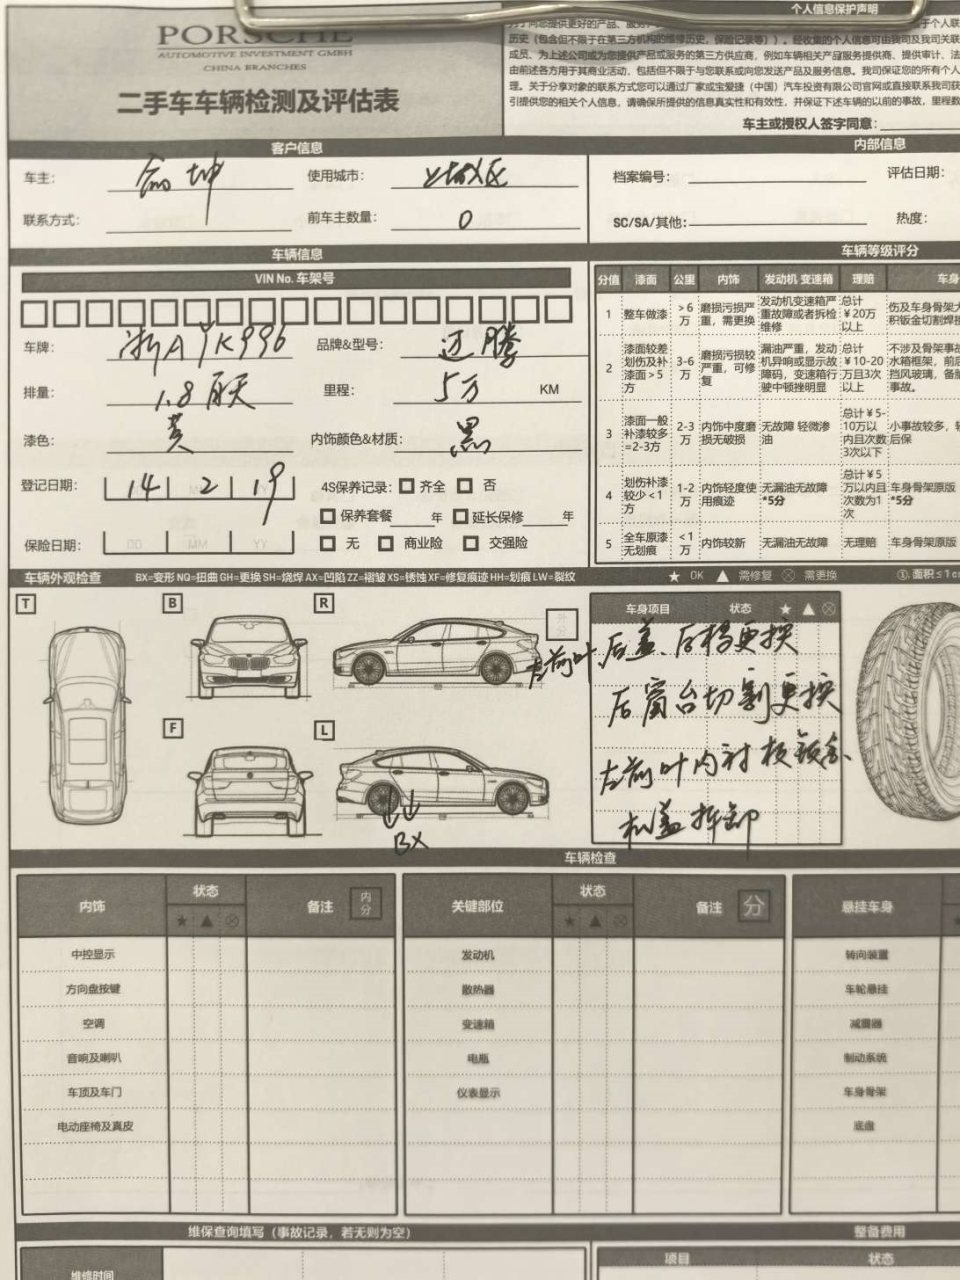 PORSCHE
AUTOMOTIVE INVESTMENT GMBH
CHINA BRANCHES
二手车车辆检测及评估表
个人信息保护声明
历史（包含但不限于在第三方机构的维修历史，保险记录等）），经收集的个人信息可由我司及我司关联
成员、为上述公司或为您提供产品或服务的第三方供应商，例如车辆相关产品服务提供商、提供审计、法
由前述各方用于其商业活动，包括但不限于与您联系或向您发送产品及服务信息。我司保证您的所有个人
理。关于分享对象的联系方式您可以通过厂家或宝爱捷（中国）汽车投资有限公司官网或直接联系我司获
引提供您的相关个人信息，请确保所提供的信息真实性和有效性，并保证下述车辆的以前的事故，里程数
车主或授权人签字同意：
客户信息
内部信息
车主： 坤
使用城市：
档案编号：
评估日期：
联系方式：
前车主数量： 0
SC/SA/其他:
热度：
车辆信息
车辆等级评分
VIN No. 车架号
车牌： 浙A YK996
品牌&型号： 迈腾
排量： 1.8
里程： 5万 KM
漆色： 黄
内饰颜色&材质： 黑
登记日期： 14 2 19
4S保养记录： 齐全 否
保养套餐 年 延长保修 年
保险日期： DD MM YY
无 商业险 交强险
分值 漆面 公里 内饰 发动机 变速箱 理赔 车身
1 整车做漆 >6万 磨损污损严重，需更换 发动机变速箱严重故障或者拆检维修 总计¥20万以上 伤及车身骨架大积钣金切割焊接
2 漆面较差划伤及补漆面>5方 3-6万 磨损污损较严重，可修复 漏油严重，发动机异响或显示故障码，变速箱行驶中顿挫明显 总计¥10-20万且3次以上 不涉及骨架事故水箱框架，前后挡风玻璃，备胎事故。
3 漆面一般补漆较多=2-3方 2-3万 内饰中度磨损无破损 无故障 轻微渗油 总计¥5-10万以内且次数3次以下 小事故较多，轻后保
4 划伤补漆较少<1方 1-2万 内饰轻度使用痕迹 无漏油无故障*5分 总计¥5万以内且次数为1次 车身骨架原版*5分
5 全车原漆无划痕 <1万 内饰较新 无漏油无故障 无理赔 车身骨架原版
车辆外观检查 BX=变形 NQ=扭曲 GH=更换 SH=烧焊 AX=凹陷 ZZ=褶皱 XS=锈蚀 XF=修复痕迹 HH=划痕 LW=裂纹
★ OK ▲ 需修复 ⊗ 需更换 ①. 面积≤1c
T B R
外分
F L
BX
车身项目 状态 ★ ▲ ⊗
左前叶、后盖、后杠更换
后窗台切割更换
左前叶内衬板钣金、
机盖拆卸
车辆检查
内饰 状态 ★ ▲ ⊗ 备注 内分
中控显示
方向盘按键
空调
音响及喇叭
车顶及车门
电动座椅及真皮
关键部位 状态 ★ ▲ ⊗ 备注 分
发动机
散热器
变速箱
电瓶
仪表显示
悬挂车身
转向装置
车轮悬挂
减震器
制动系统
车身骨架
底盘
维保查询填写（事故记录，若无则为空）
整备费用
维修时间
项目 状态